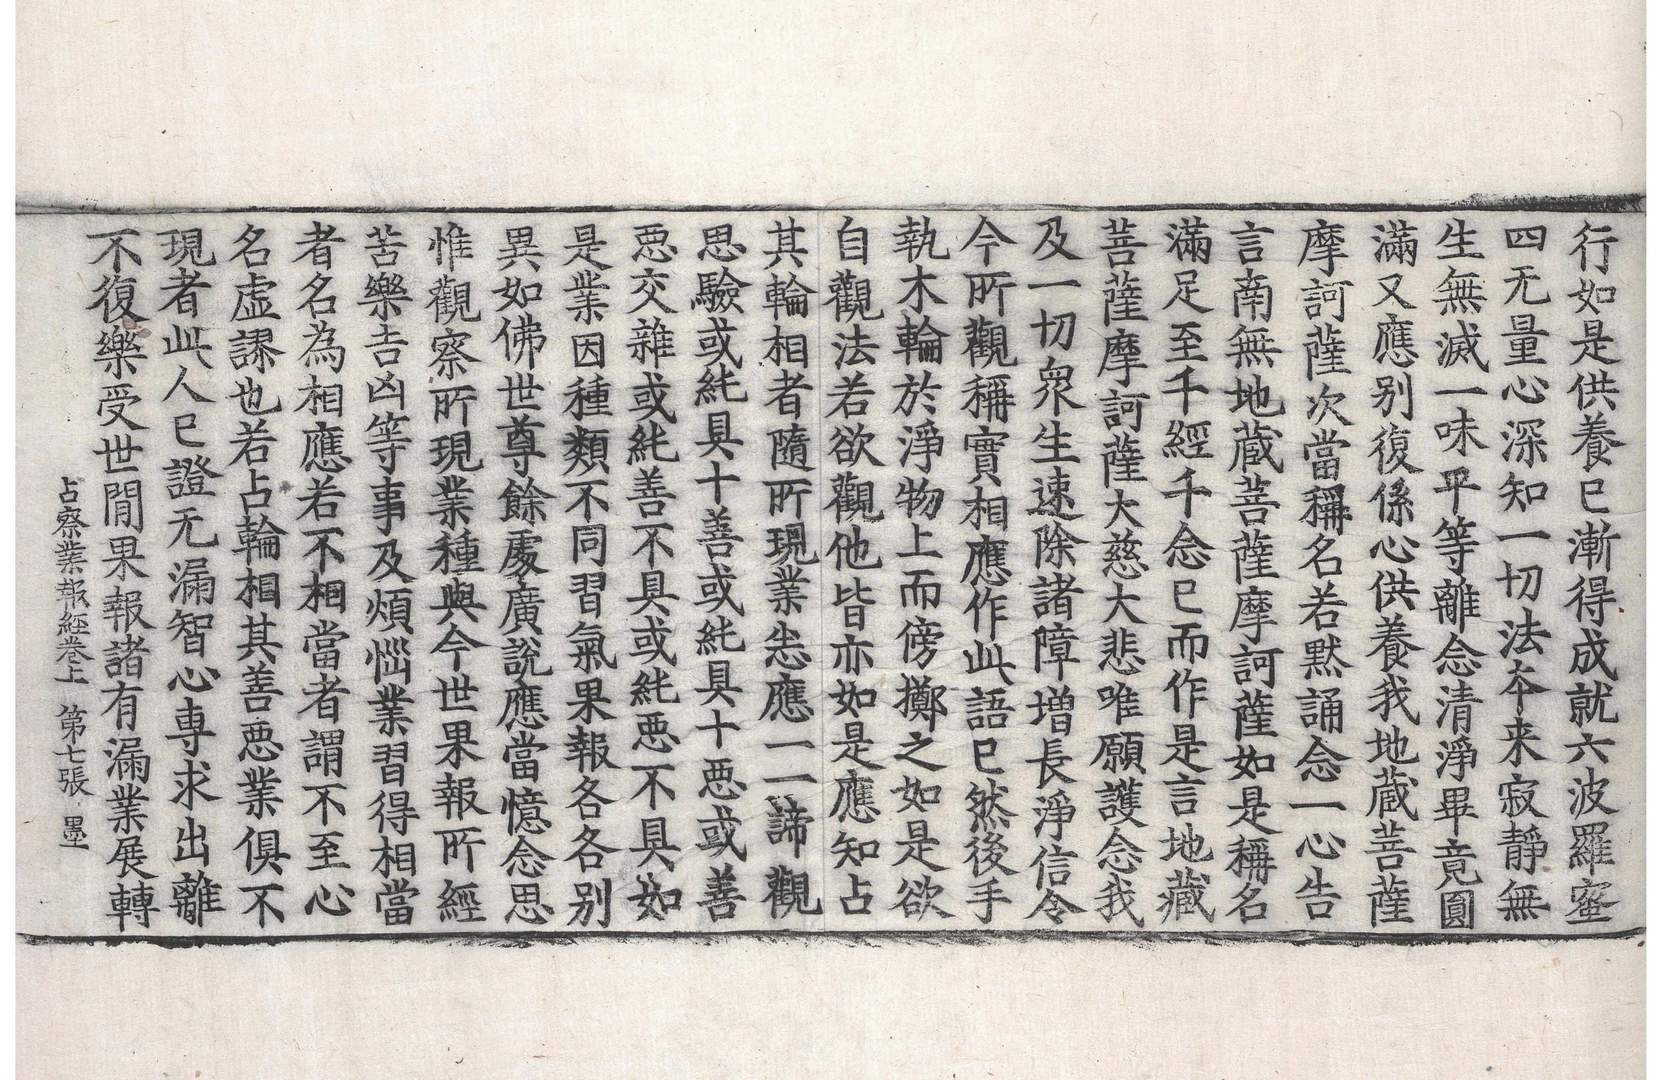 行如是供養已漸得成就六波羅蜜
四无量心深知一切法夲来寂靜無
生無滅一味平等離念清淨畢竟圓
滿又應别復係心供養我地蔵菩薩
摩訶薩次當稱名若黙誦念一心告
言南無地蔵菩薩摩訶薩如是稱名
滿足至千經千念已而作是言地蔵
菩薩摩訶薩大慈大悲唯願護念我
及一切衆生速除諸障増長淨信令
今所觀稱實相應作此語已然後手
執木輪於淨物上而傍擲之如是欲
自觀法若欲觀他皆亦如是應知占
其輪相者隨所現業悉應一一諦觀
思驗或純具十善或純具十惡或善
惡交雜或純善不具或純惡不具如
是業因種類不同習氣果報各各别
異如佛世尊餘處廣說應當憶念思
惟觀察所現業種與今世果報所經
苦樂吉凶等事及煩惱業習得相當
者名為相應若不相當者謂不至心
名虛謬也若占輪相其善惡業俱不
現者此人已證无漏智心専求出離
不復樂受世間果報諸有漏業展轉
占察業報經卷上 第七張 墨